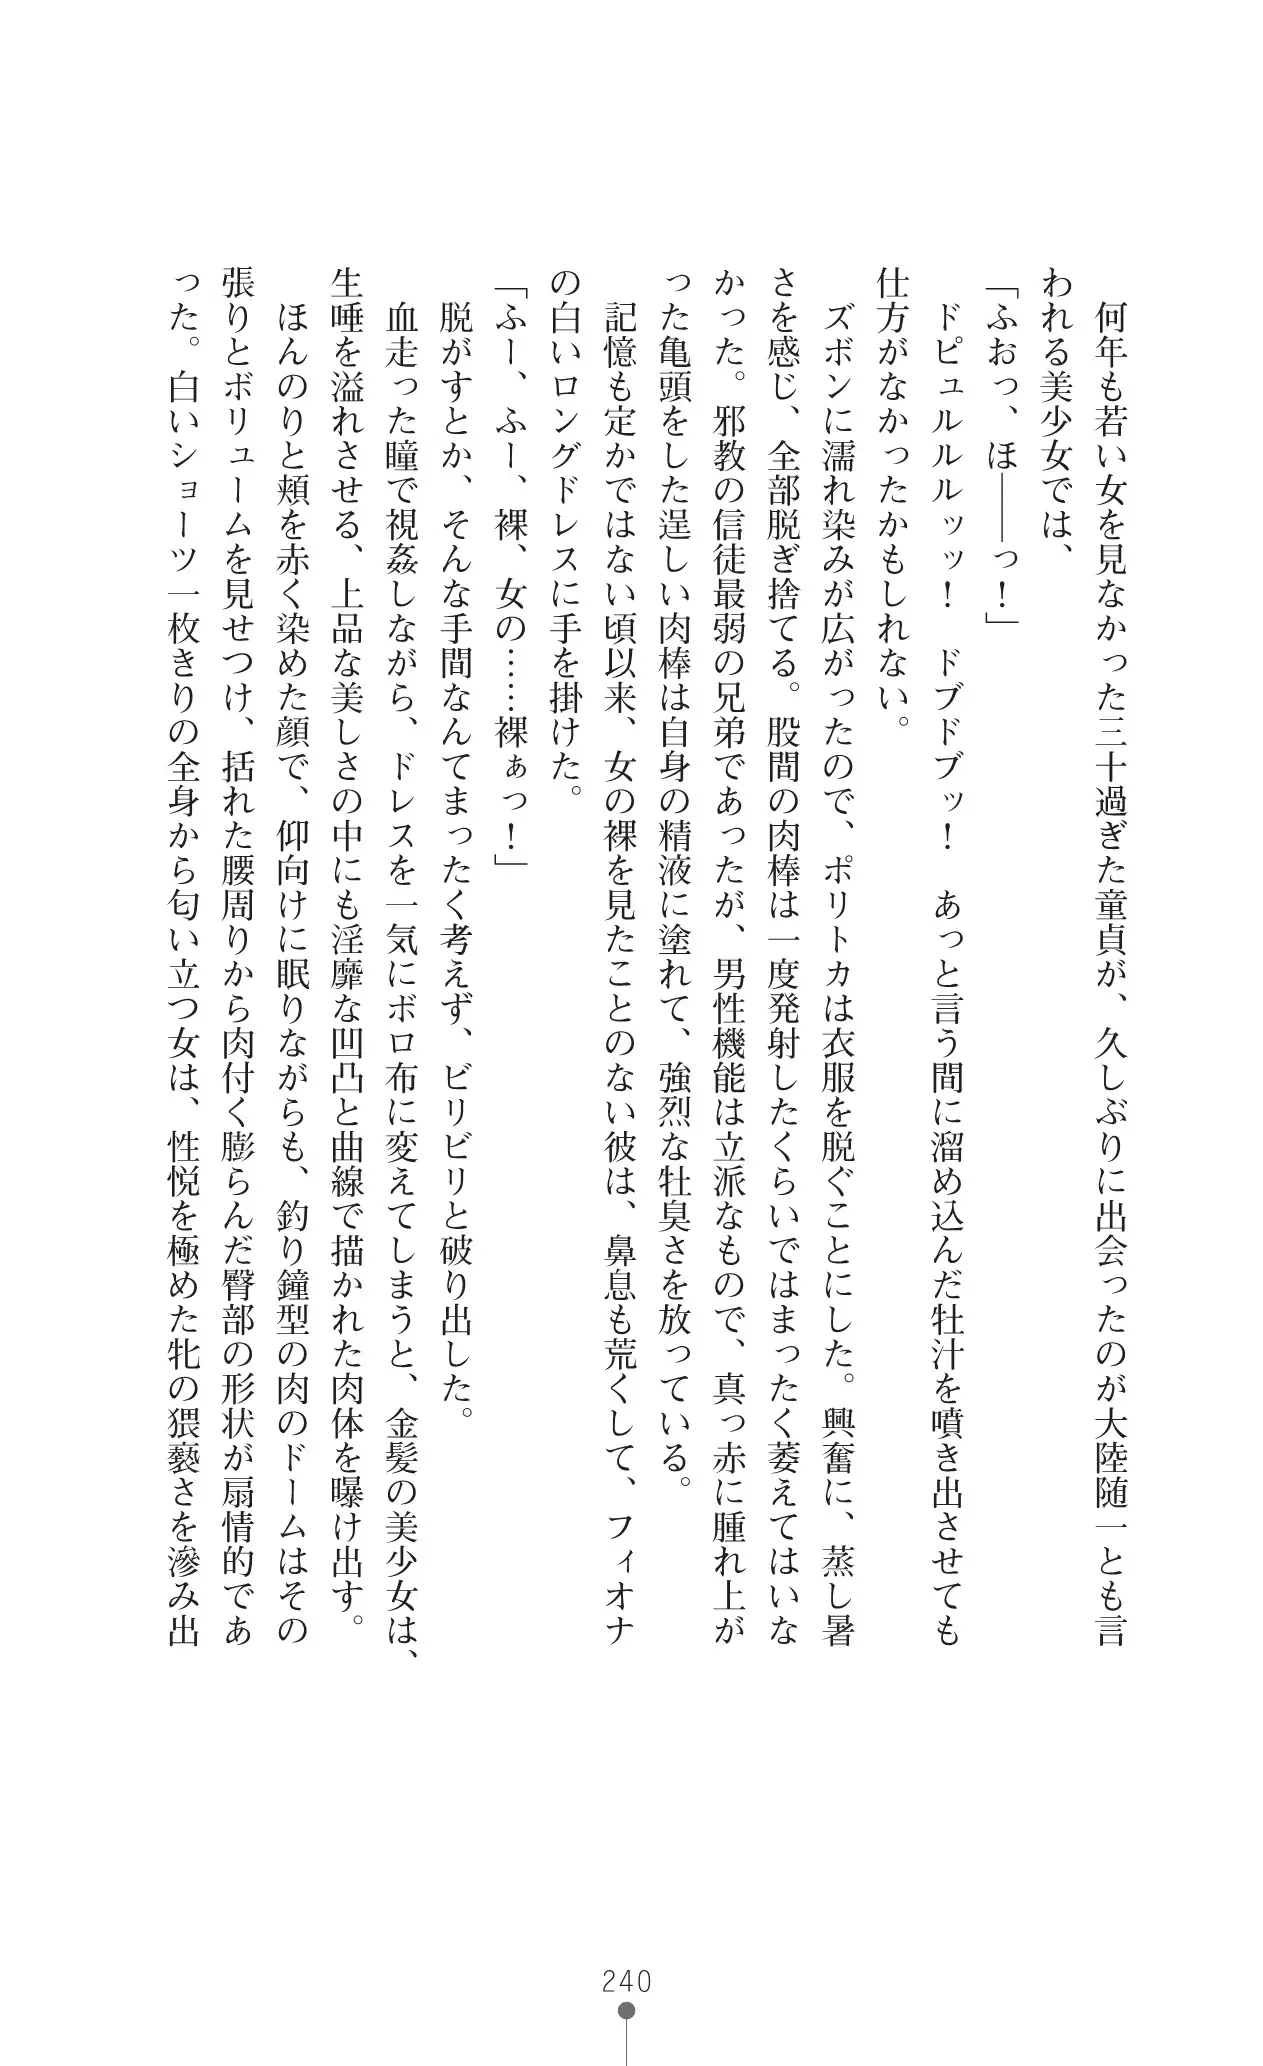 何年も若い女を見なかった三十過ぎた童貞が、久しぶりに出会ったのが大陸随一とも言
われる美少女では、
「ふおっ、ほ――っ！」
ドピュルルルッッ！　ドブドブッ！　あっと言う間に溜め込んだ牡汁を噴き出させても
仕方がなかったかもしれない。
ズボンに濡れ染みが広がったので、ポリトカは衣服を脱ぐことにした。興奮に、蒸し暑
さを感じ、全部脱ぎ捨てる。股間の肉棒は一度発射したくらいではまったく萎えてはいな
かった。邪教の信徒最弱の兄弟であったが、男性機能は立派なもので、真っ赤に腫れ上が
った亀頭をした逞しい肉棒は自身の精液に塗れて、強烈な牡臭さを放っている。
記憶も定かではない頃以来、女の裸を見たことのない彼は、鼻息も荒くして、フィオナ
の白いロングドレスに手を掛けた。
「ふー、ふー、裸、女の……裸ぁっ！」
脱がすとか、そんな手間なんてまったく考えず、ビリビリと破り出した。
血走った瞳で視姦しながら、ドレスを一気にボロ布に変えてしまうと、金髪の美少女は、
生唾を溢れさせる、上品な美しさの中にも淫靡な凹凸と曲線で描かれた肉体を曝け出す。
ほんのりと頬を赤く染めた顔で、仰向けに眠りながらも、釣り鐘型の肉のドームはその
張りとボリュームを見せつけ、括れた腰周りから肉付く膨らんだ臀部の形状が扇情的であ
った。白いショーツ一枚きりの全身から匂い立つ女は、性悦を極めた牝の猥褻さを滲み出
240